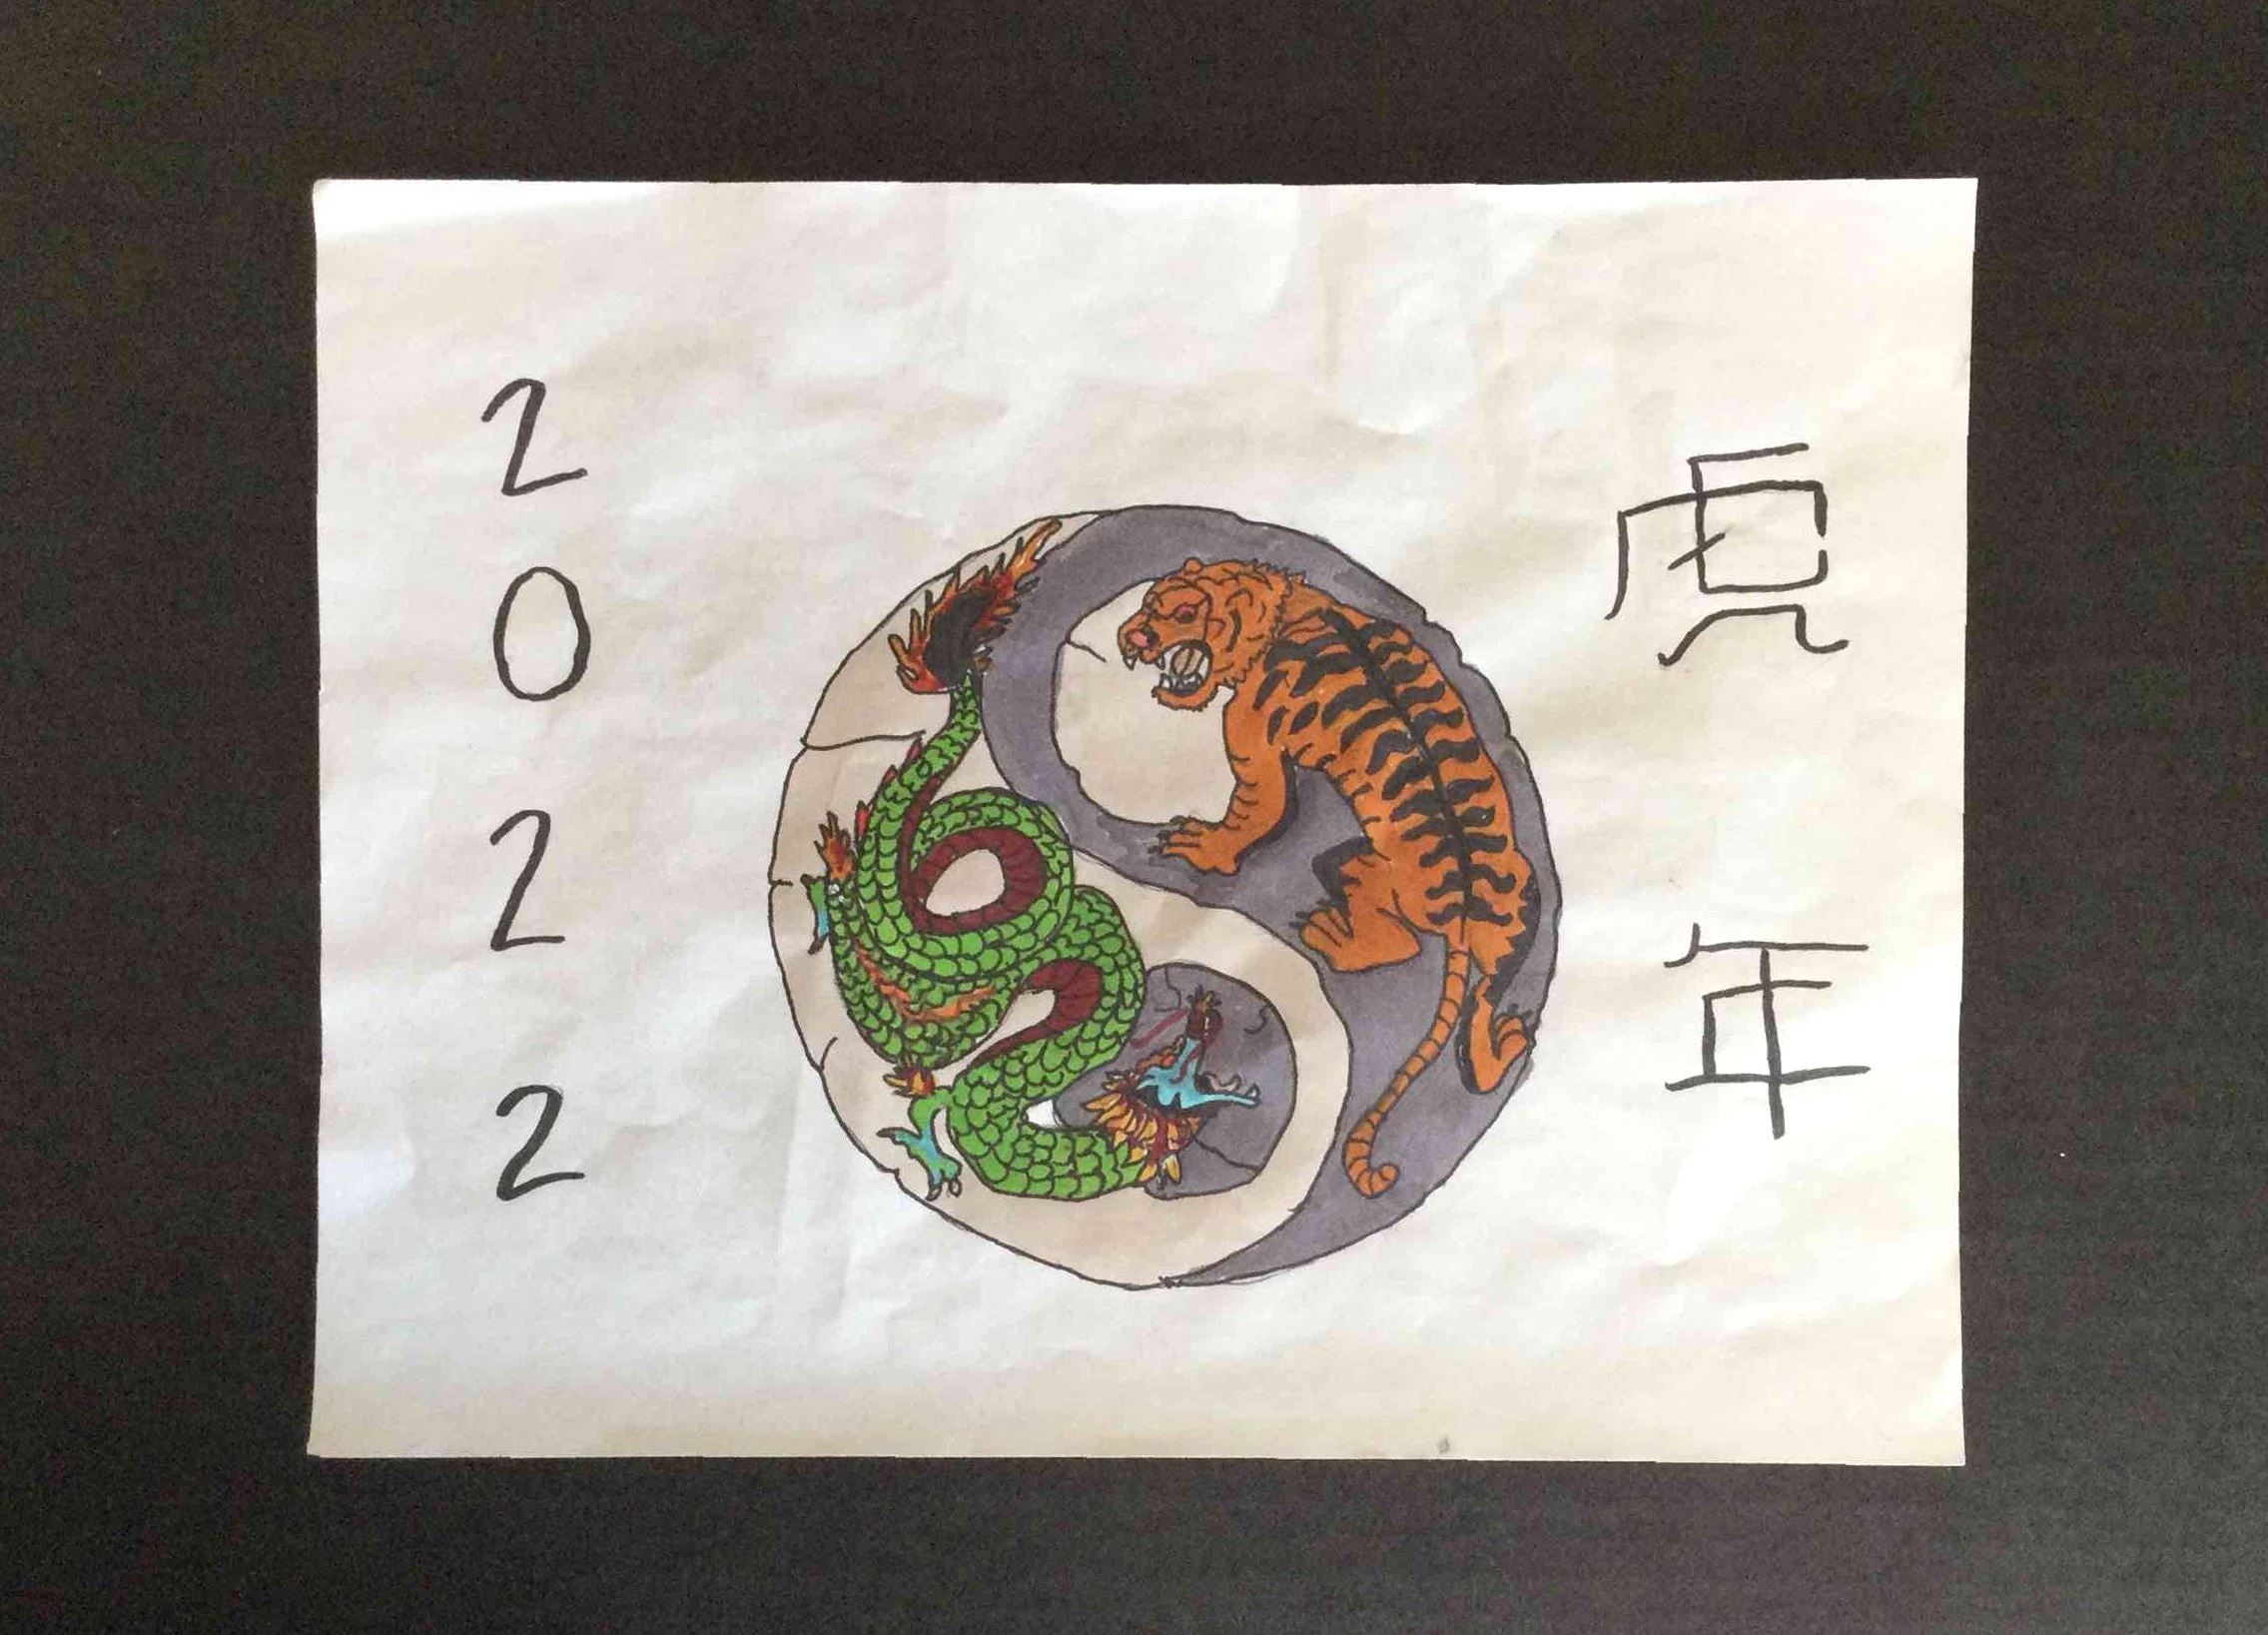 2022
虎年